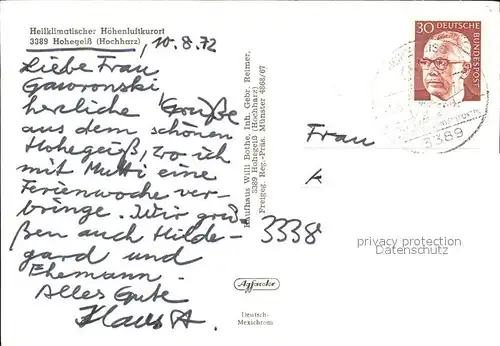 Heilklimatischer Höhenluftkurort
3389 Hohegeiß (Hochharz)
10.8.72
Liebe Frau
Gaworonski,
herzliche Grüße
aus dem schönen
Hohegeiß, wo ich
mit Mutti eine
Ferienwoche ver-
bringe. Wir grü-
ßen auch Hilde-
gard und
Ehemann.
Alles Gute
Klaus A.
Kaufhaus Willi Bothe, Inh. Gebr. Reimer,
3389 Hohegeiß (Hochharz)
Freigeg. Reg.-Präs. Münster 4868/67
Agfacolor
Deutsch-
Mexichrom
30 DEUTSCHE
BUNDESPOST
3389
Frau
3338
privacy protection
Datenschutz